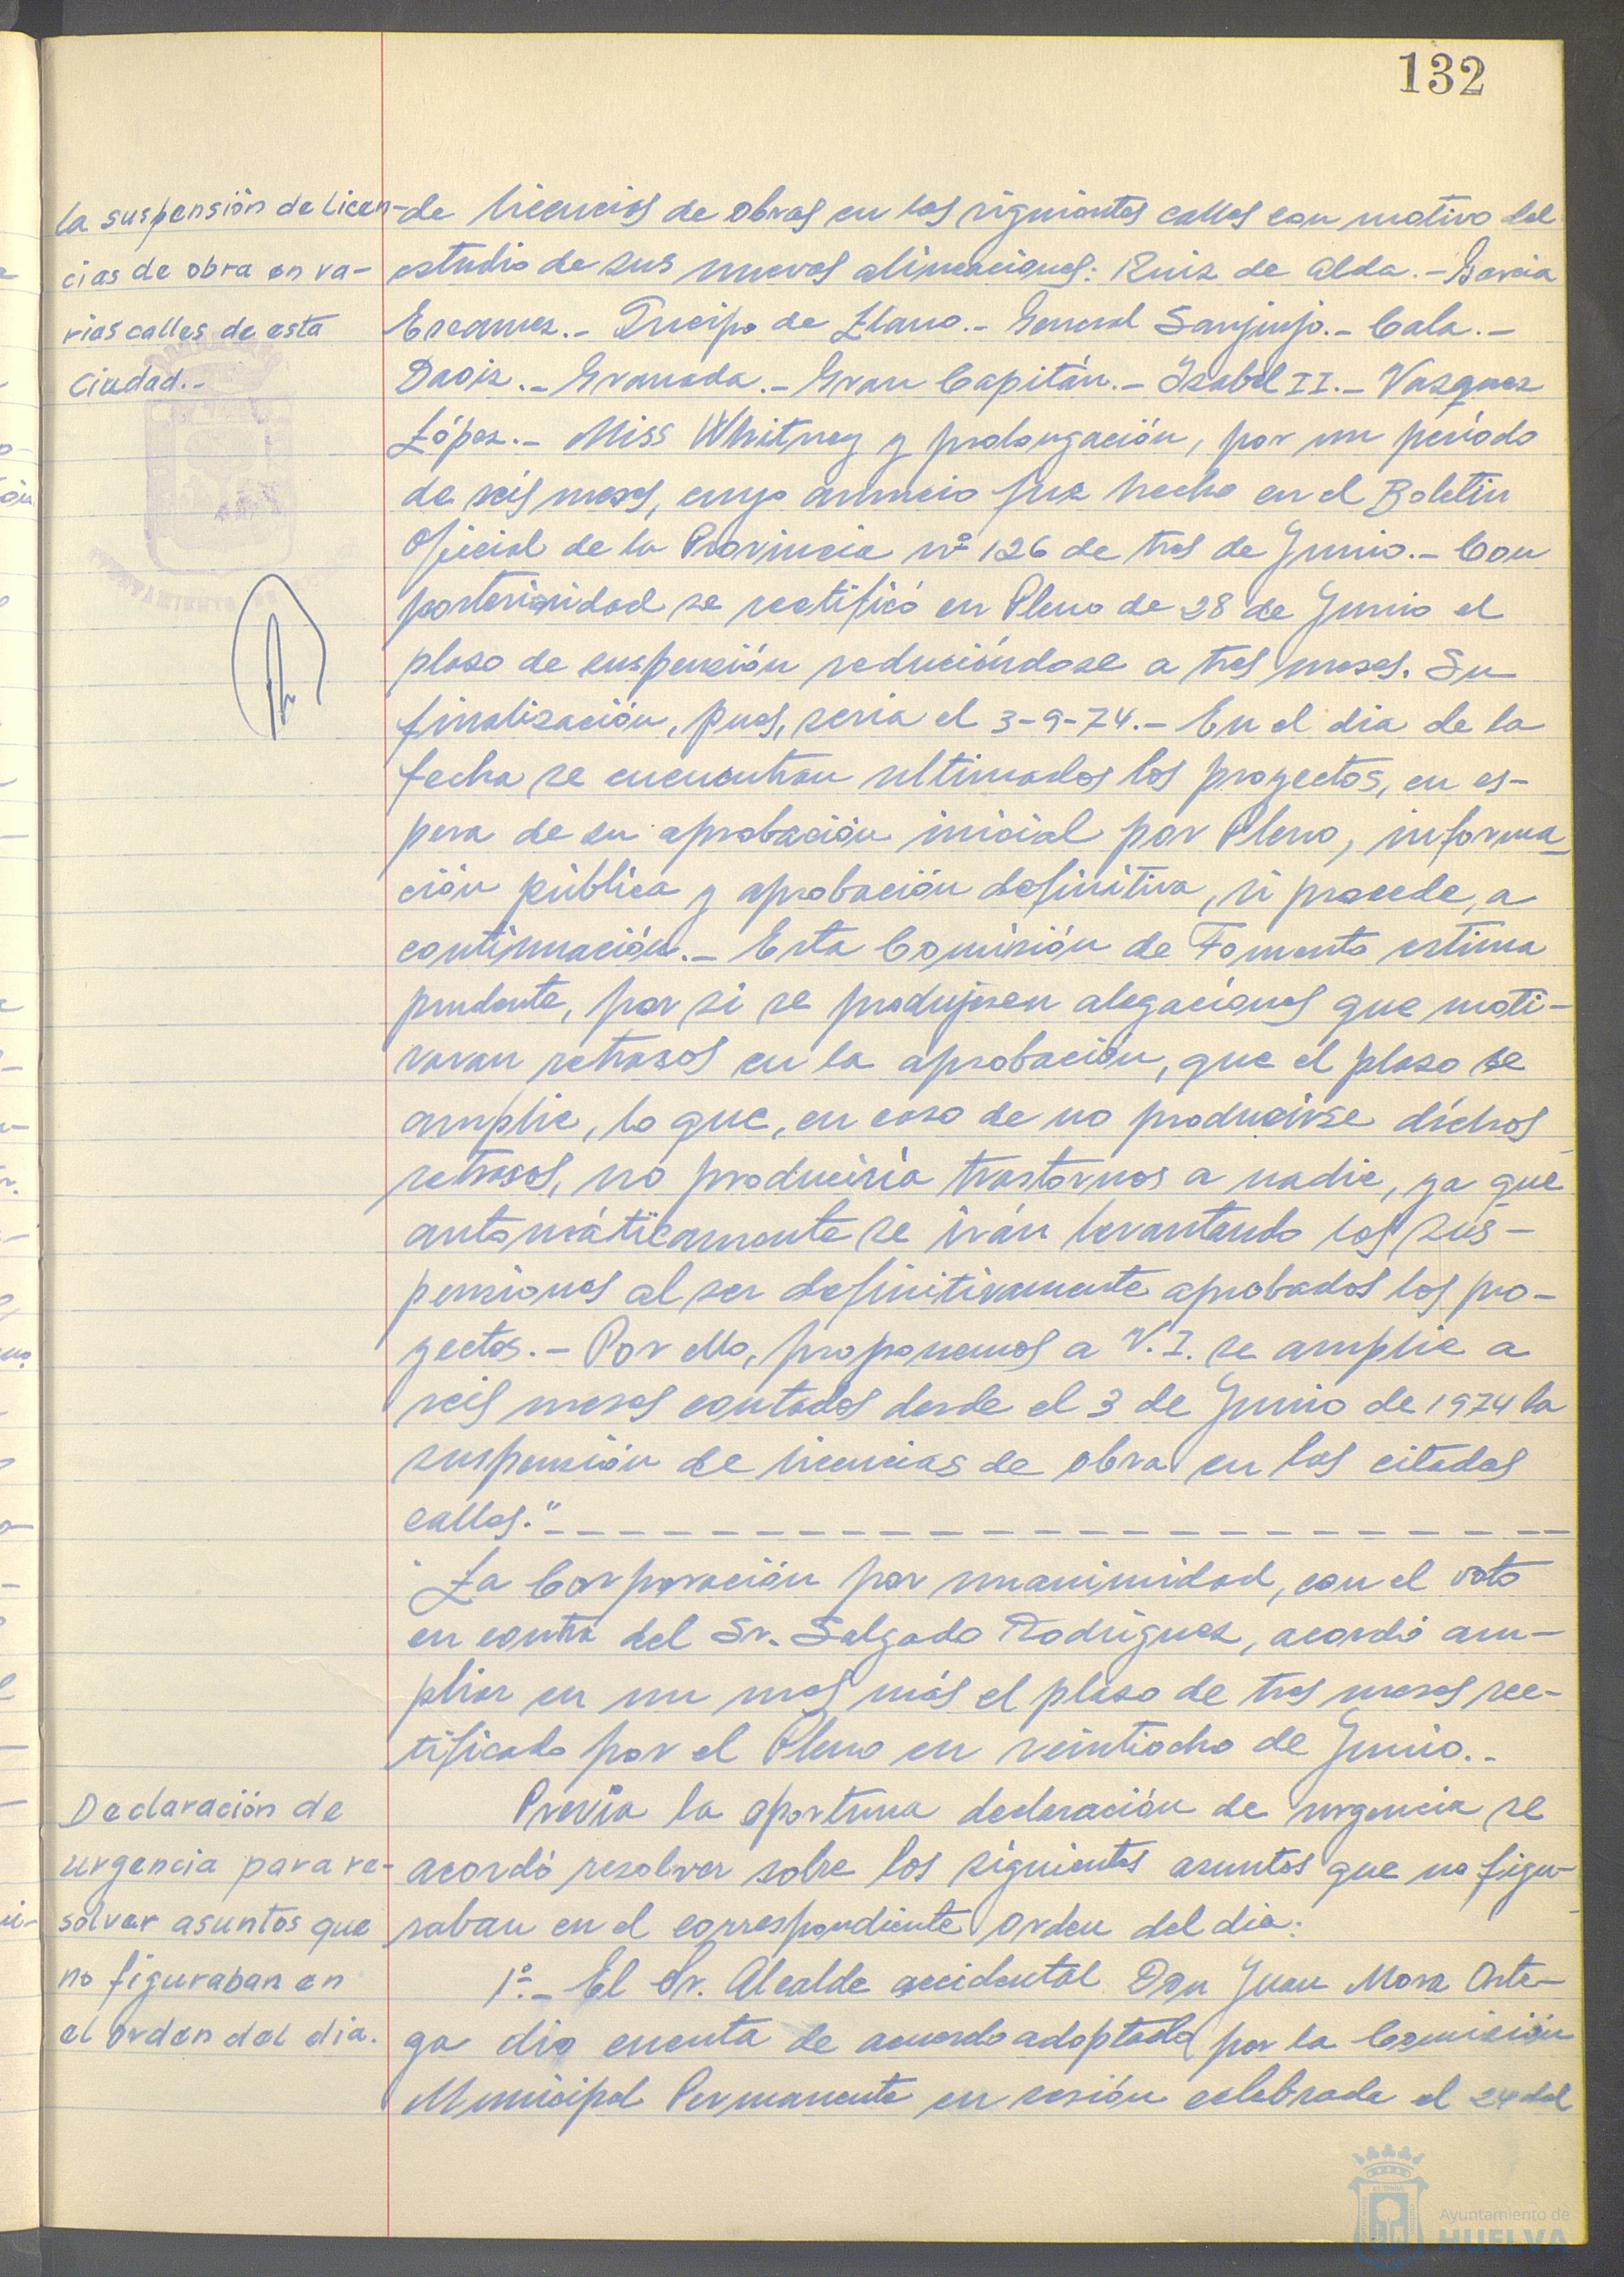 132
la suspensión de licen-
cias de obra en va-
rias calles de esta
Ciudad.-
de licencias de obras en las siguientes calles con motivo del
estudio de sus nuevas alineaciones: Ruiz de Alda.- Garcia
Ercamez.- Queipo de Llano.- General Sanjurjo.- Cala.-
Daoiz.- Granada.- Gran Capitán.- Isabel II.- Vazquez
López.- Miss Whitney y prolongación, por un período
de seis meses, cuyo anuncio fué hecho en el Boletin
Oficial de la Provincia nº 126 de tres de Junio.- Con
posterioridad se rectificó en Pleno de 28 de Junio el
plazo de suspensión reduciéndose a tres meses. Su
finalización, pues, seria el 3-9-74.- En el dia de la
fecha se encuentran ultimados los proyectos, en es-
pera de su aprobación inicial por Pleno, informa-
ción pública y aprobación definitiva, si procede, a
continuación.- Esta Comisión de Fomento estima
prudente, por si se produjesen alegaciones que moti-
varan retrasos en la aprobación, que el plazo se
amplie, lo que, en caso de no producirse dichos
retrasos, no produciría trastornos a nadie, ya que
automáticamente se irán levantando las sus-
pensiones al ser definitivamente aprobados los pro-
yectos.- Por ello, proponemos a V.I. se amplie a
seis meses contados desde el 3 de Junio de 1974 la
suspensión de licencias de obra en las citadas
calles."
La Corporación por unanimidad, con el voto
en contra del Sr. Salgado Rodriguez, acordó am-
pliar en un mes más el plazo de tres meses rec-
tificado por el Pleno en veintiocho de Junio.-
Declaración de
urgencia para re-
solver asuntos que
no figuraban en
el orden del dia.
Previa la oportuna declaración de urgencia se
acordó resolver sobre los siguientes asuntos que no figu-
raban en el correspondiente orden del dia:
1º.- El Sr. Alcalde accidental Don Juan Mora Orte-
ga dio cuenta de acuerdo adoptado por la Comisión
Municipal Permanente en sesión celebrada el 24 del
Ayuntamiento de
HUELVA